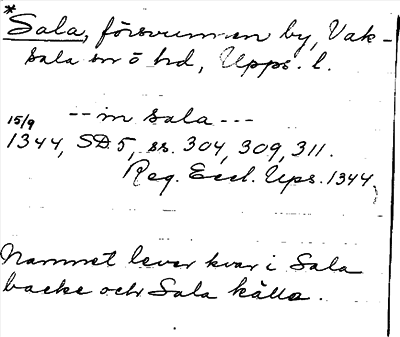 *
Sala, försvunnen by, Vak-
sala sn ö hd, Upps. l.
-- in sala ---
15/9
1344, SD 5, ss. 304, 309, 311.
Reg. Eccl. Ups. 1344.
Namnet lever kvar i Sala
backe och Sala källa.